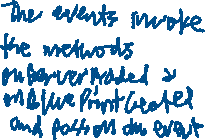 The events invoke
the methods
onServerAdded &
onBluePrintCreated
and pass on the event